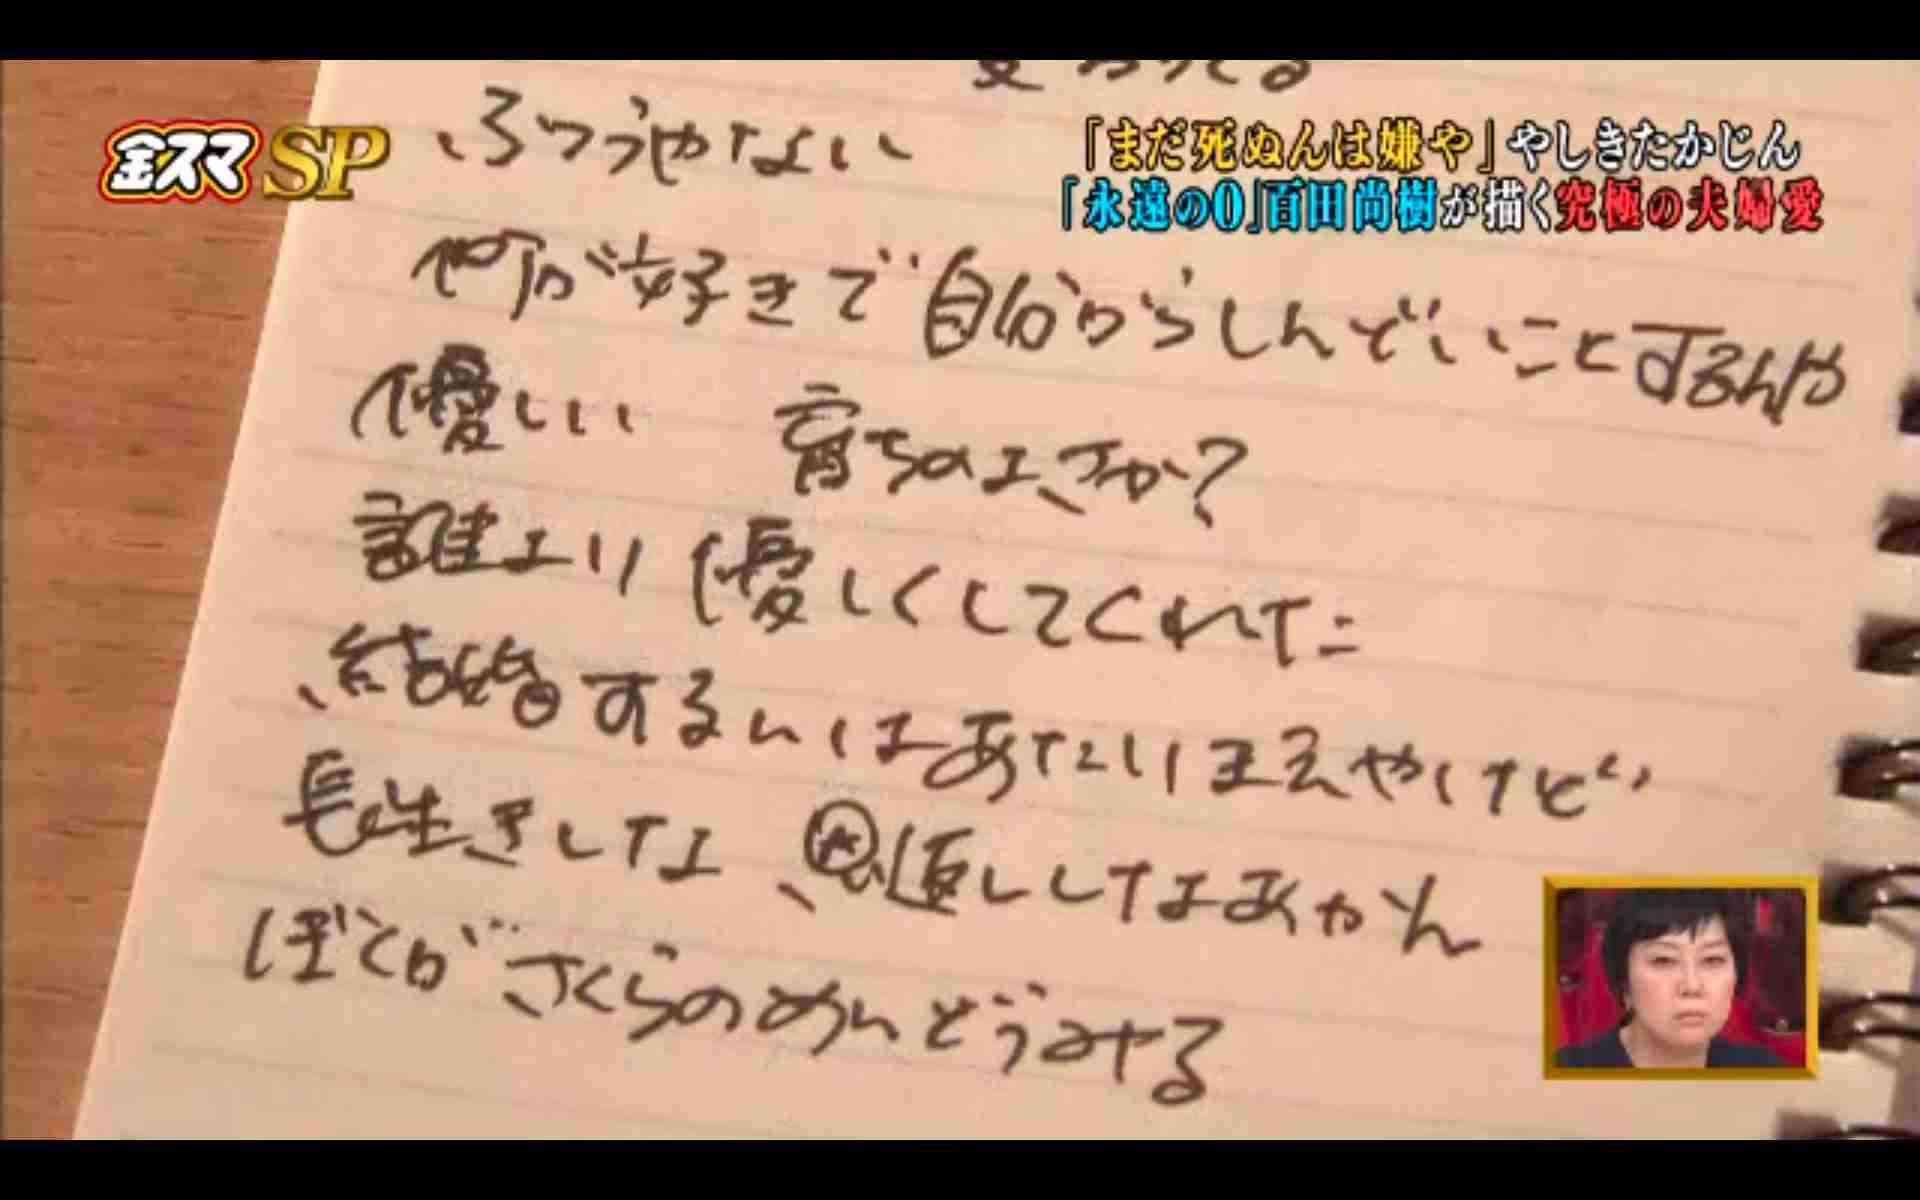 変わってる
金スマSP
「まだ死ぬんは嫌や」やしきたかじん
「永遠の0」百田尚樹が描く究極の夫婦愛
ふつうやない
何が好きで自分からしんどいことするんや
優しい 育ちのよさか?
誰より優しくしてくれた
結婚するんはあたりまえやけど
長生きしてな 恩返ししなあかん
ぼくがさくらのめんどうみやる